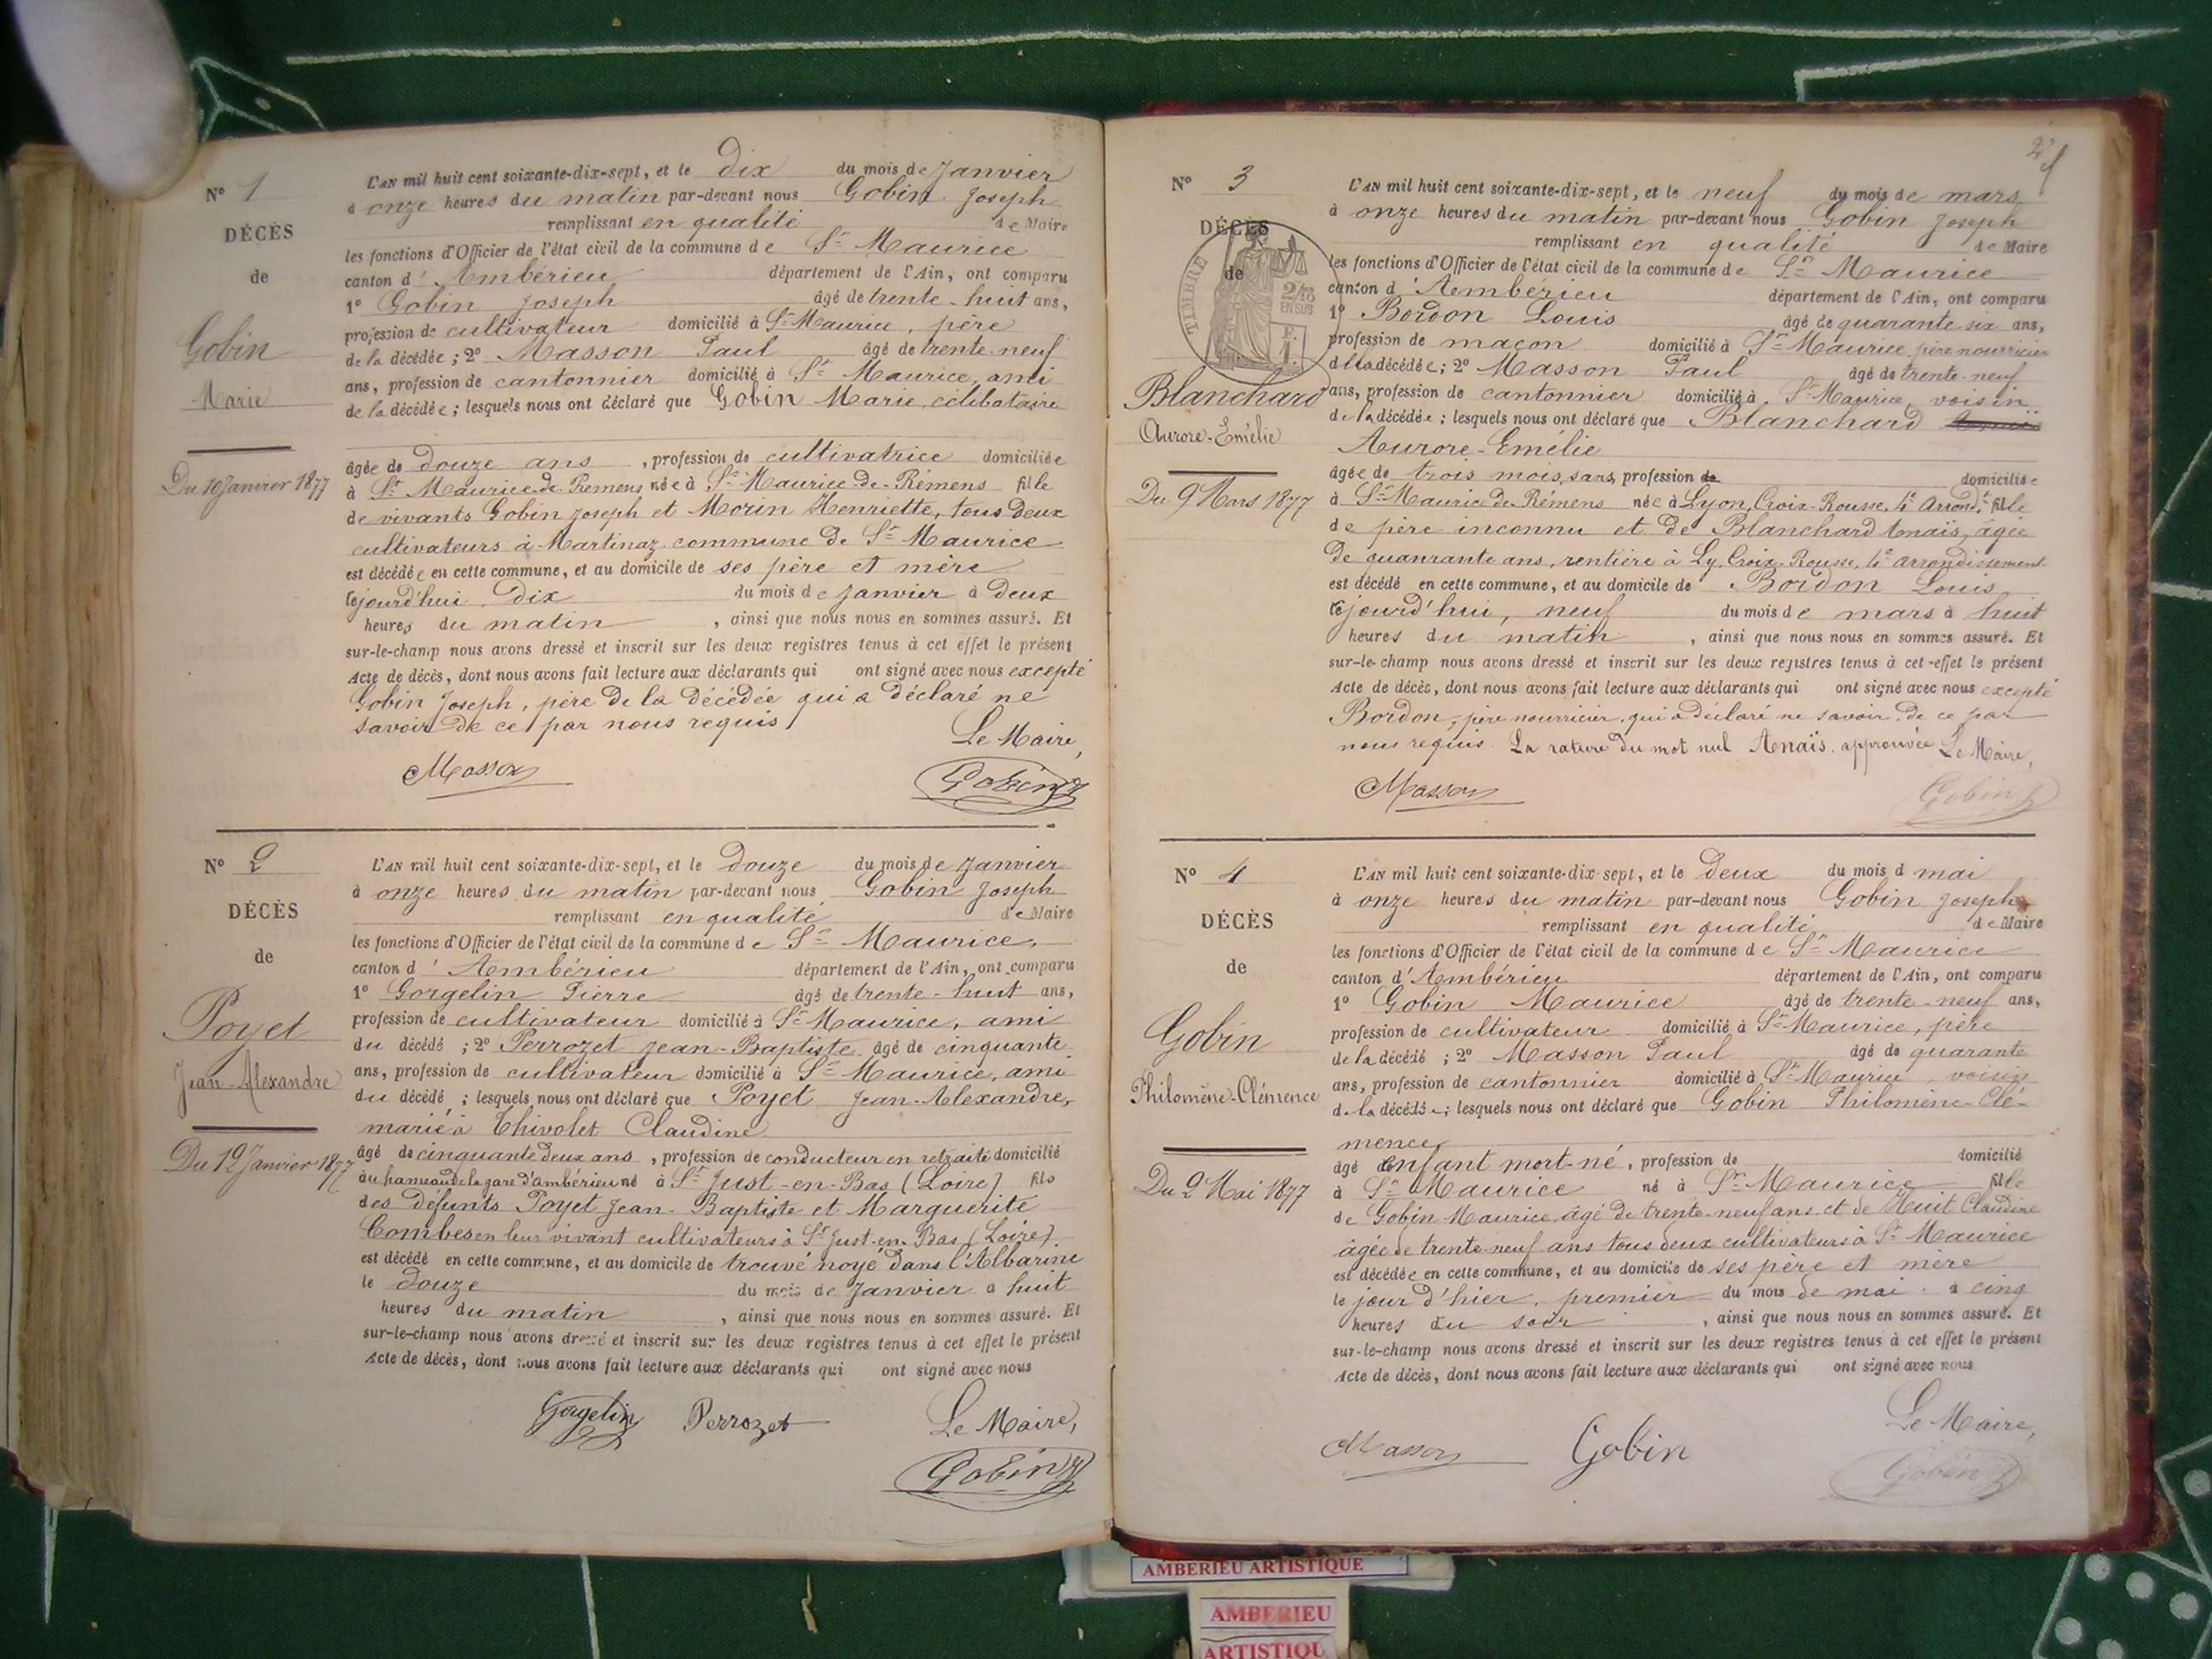 N° 1
DÉCÈS
de
Gobin
Marie
Du 10 Janvier 1877
L'AN mil huit cent soixante-dix-sept, et le Dix du mois de Janvier
à onze heures du matin par-devant nous Gobin Joseph
remplissant en qualité de Maire
les fonctions d'Officier de l'état civil de la commune de St Maurice
canton d'Ambérieu département de l'Ain, ont comparu
1° Gobin Joseph âgé de trente-huit ans,
profession de cultivateur domicilié à St Maurice, père
de la décédée ; 2° Masson Paul âgé de trente-neuf
ans, profession de cantonnier domicilié à St Maurice, ami
de la décédée ; lesquels nous ont déclaré que Gobin Marie, célibataire
âgée de douze ans, profession de cultivatrice domiciliée
à St Maurice-de-Remens née à St Maurice-de-Rémens fille
de vivants Gobin Joseph et Morin Henriette, tous deux
cultivateurs à Martinaz commune de St Maurice
est décédée en cette commune, et au domicile de ses père et mère
cejourd'hui Dix du mois de Janvier à Deux
heures du matin, ainsi que nous nous en sommes assuré. Et
sur-le-champ nous avons dressé et inscrit sur les deux registres tenus à cet effet le présent
Acte de décès, dont nous avons fait lecture aux déclarants qui ont signé avec nous excepté
Gobin Joseph, père de la décédée qui a déclaré ne
savoir de ce par nous requis
Le Maire,
Masson Gobin
N° 2
DÉCÈS
de
Poyet
Jean-Alexandre
Du 12 Janvier 1877
L'AN mil huit cent soixante-dix-sept, et le Douze du mois de Janvier
à onze heures du matin par-devant nous Gobin Joseph
remplissant en qualité de Maire
les fonctions d'Officier de l'état civil de la commune de St Maurice,
canton d'Ambérieu département de l'Ain, ont comparu
1° Gorgelin Pierre âgé de trente-huit ans,
profession de cultivateur domicilié à St Maurice, ami
du décédé ; 2° Perrozet Jean-Baptiste âgé de cinquante
ans, profession de cultivateur domicilié à St Maurice, ami
du décédé ; lesquels nous ont déclaré que Poyet Jean-Alexandre,
marié à Thivolet Claudine
âgé de cinquante deux ans, profession de conducteur en retraite domicilié
au hameau de la gare d'ambérieu né à St Just-en-Bas (Loire) fils
des défunts Poyet Jean-Baptiste et Marguerite
Combes en leur vivant cultivateurs à St Just-en-Bas (Loire)
est décédé en cette commune, et au domicile de trouvé noyé dans l'Albarine
le douze du mois de Janvier à huit
heures du matin, ainsi que nous nous en sommes assuré. Et
sur-le-champ nous avons dressé et inscrit sur les deux registres tenus à cet effet le présent
Acte de décès, dont nous avons fait lecture aux déclarants qui ont signé avec nous
Gorgelin Perrozet Le Maire,
Gobin
N° 3
DÉCÈS
de
TIMBRE
2/10
EN SUS
Blanchard
Aurore-Emélie
Du 9 Mars 1877
L'AN mil huit cent soixante-dix-sept, et le neuf du mois de mars
à onze heures du matin par-devant nous Gobin Joseph
remplissant en qualité de Maire
les fonctions d'Officier de l'état civil de la commune de St Maurice
canton d'Ambérieu département de l'Ain, ont comparu
1° Bordon Louis âgé de quarante six ans,
profession de maçon domicilié à St Maurice père nourricier
de la décédée ; 2° Masson Paul âgé de trente-neuf
ans, profession de cantonnier domicilié à St Maurice, voisin
de la décédée ; lesquels nous ont déclaré que Blanchard Anaïs
Aurore-Emélie
âgée de trois mois, sans profession de domiciliée
à St Maurice de Rémens née à Lyon, Croix-Rousse, 4e Arrondt fille
de père inconnu et de Blanchard Anaïs, âgée
de quanrante ans, rentière à Ly, Croix-Rousse, 4e arrondissement
est décédé en cette commune, et au domicile de Bordon Louis
cejourd'hui, neuf du mois de mars à huit
heures du matin, ainsi que nous nous en sommes assuré. Et
sur-le-champ nous avons dressé et inscrit sur les deux registres tenus à cet effet le présent
Acte de décès, dont nous avons fait lecture aux déclarants qui ont signé avec nous excepté
Bordon, père nourricier, qui a déclaré ne savoir de ce par
nous requis. La rature du mot nul Anaïs approuvée Le Maire,
Masson Gobin
N° 4
DÉCÈS
de
Gobin
Philomène-Clémence
Du 2 Mai 1877
L'AN mil huit cent soixante-dix-sept, et le Deux du mois d mai
à onze heures du matin par-devant nous Gobin Joseph
remplissant en qualité de Maire
les fonctions d'Officier de l'état civil de la commune de St Maurice
canton d'Ambérieu département de l'Ain, ont comparu
1° Gobin Maurice âgé de trente-neuf ans,
profession de cultivateur domicilié à St Maurice, père
de la décédé ; 2° Masson Paul âgé de quarante
ans, profession de cantonnier domicilié à St Maurice voisin
de la décédée ; lesquels nous ont déclaré que Gobin Philomène-Clé-
mence
âgé enfant mort-né, profession de domicilié
à St Maurice né à St Maurice fille
de Gobin Maurice, âgé de trente-neuf ans et de Huit Claudine
âgée de trente-neuf ans tous deux cultivateurs à St Maurice
est décédée en cette commune, et au domicile de ses père et mère
le jour d'hier, premier du mois de mai à cinq
heures du soir, ainsi que nous nous en sommes assuré. Et
sur-le-champ nous avons dressé et inscrit sur les deux registres tenus à cet effet le présent
Acte de décès, dont nous avons fait lecture aux déclarants qui ont signé avec nous
Le Maire,
Masson Gobin Gobin
AMBERIEU ARTISTIQUE
AMBERIEU
ARTISTIQU